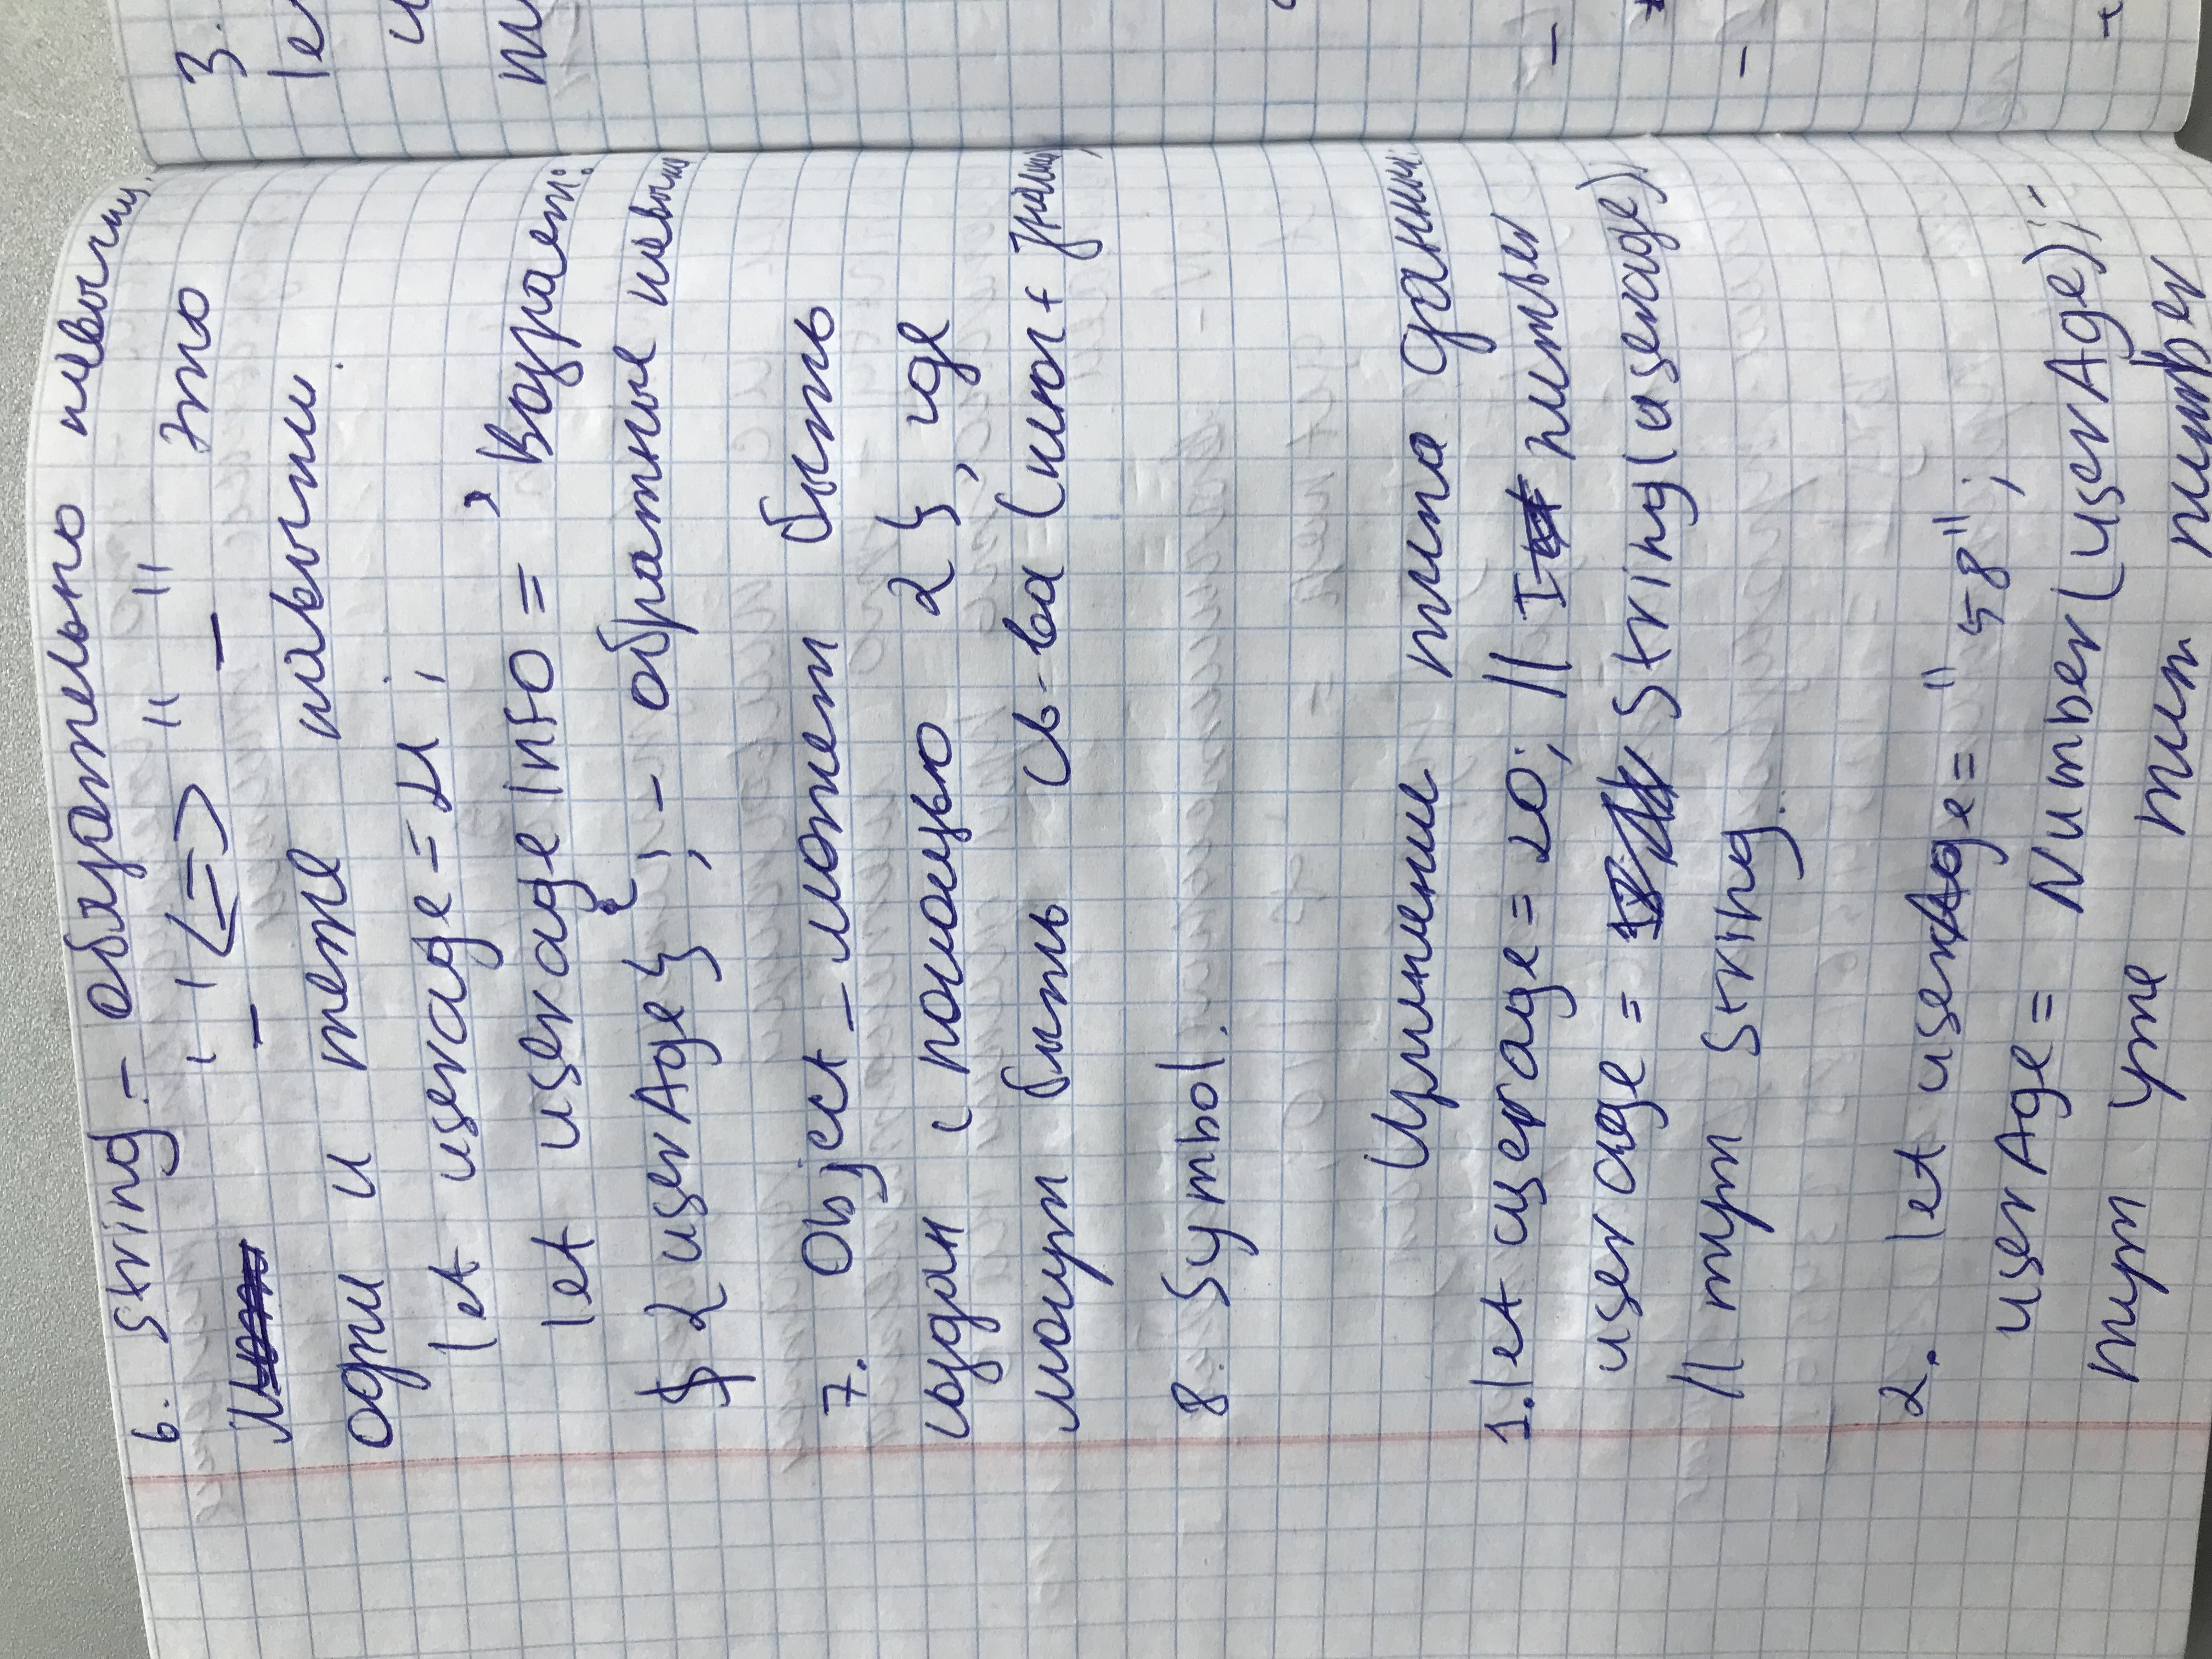 6. String - обязательно кавычки.
' _ ' <=> " _ " это
одни и теже кавычки.
let userage = 21 ;
let userageInfo = ` Возраст:
$ { userAge } ` ; - обратные кавычки
7. Object - может быть
создан с помощью { }, где
могут быть св-ва (ключ + значение)
8. Symbol.
Изменение типа данных:
1. let userage = 20; // number
userage = String(userage);
// тут String.
2. let userAge = "58";
userAge = Number(userAge);
тут уже тип number
3.
let